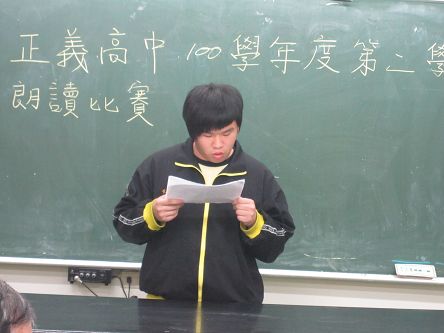 正義高中 100學年度第二學
朗讀比賽